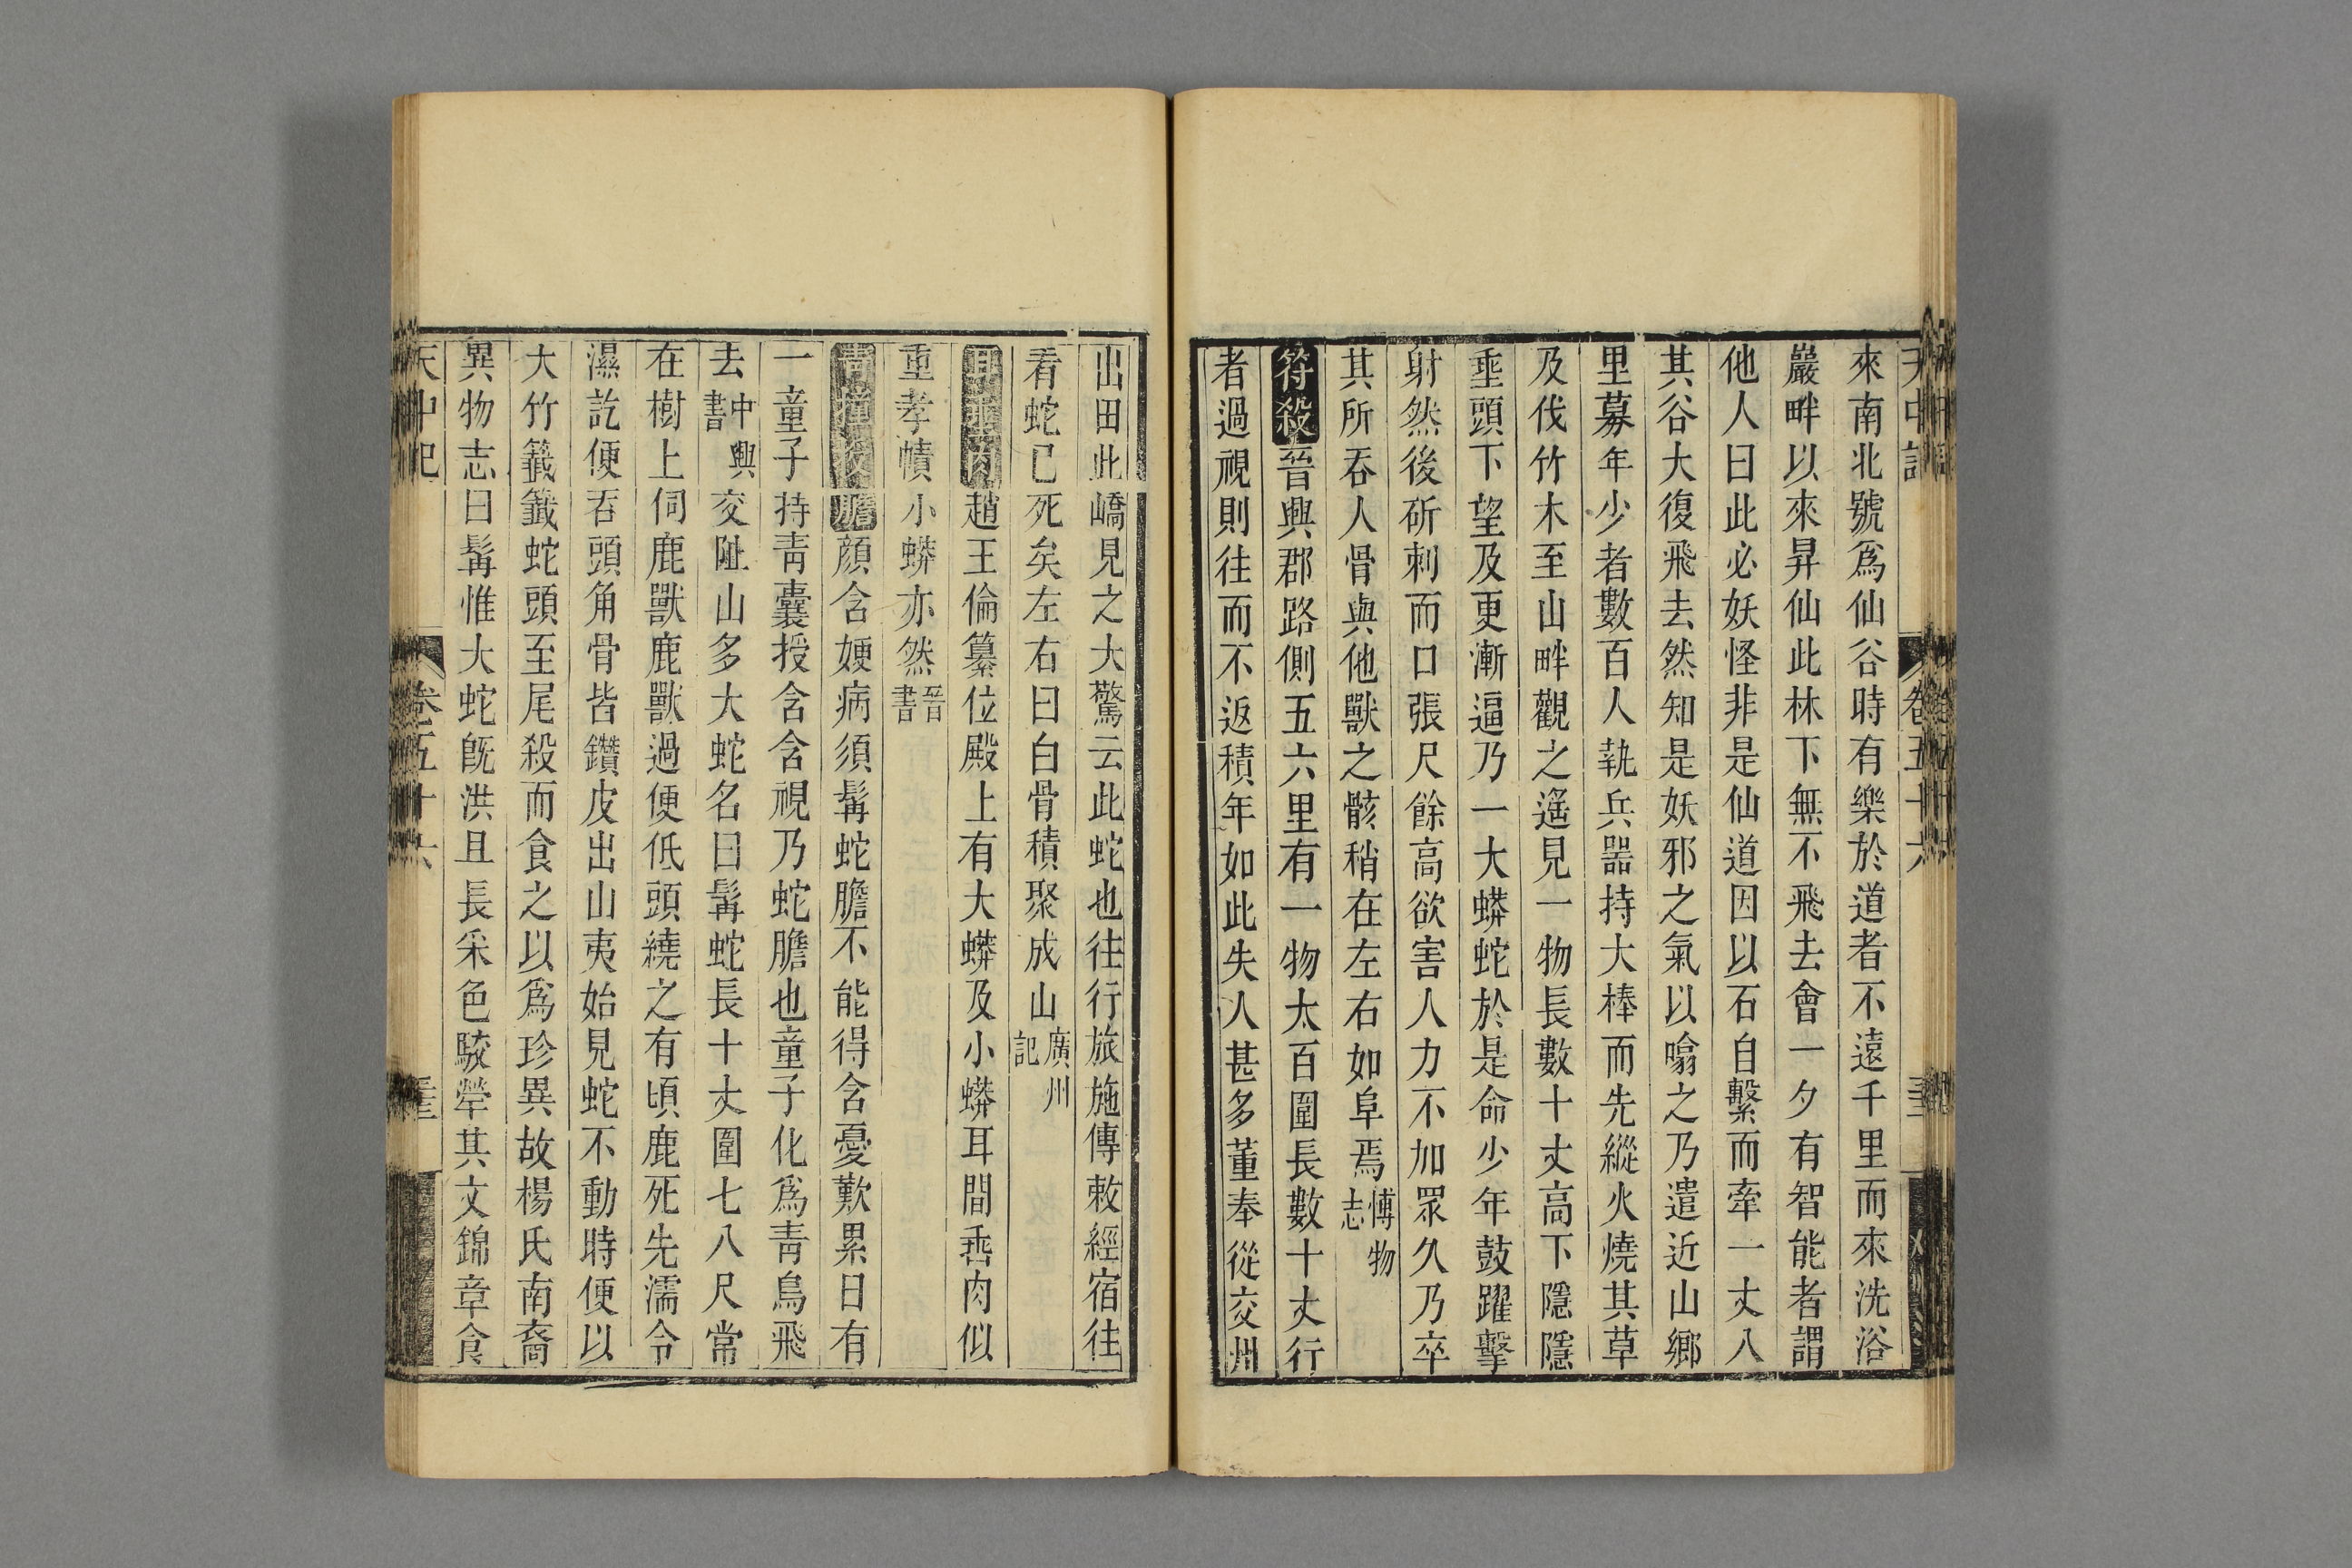 來南北號爲仙谷時有樂於道者不遠千里而來洗浴
巖畔以來昇仙此林下無不飛去會一夕有智能者謂
他人曰此必妖怪非是仙道因以石自繫而牽一丈八
其谷大復飛去然知是妖邪之氣以噏之乃遣近山鄉
里募年少者數百人執兵器持大棒而先縱火燒其草
及伐竹木至山畔觀之遙見一物長數十丈高下隱隱
垂頭下望及更漸逼乃一大蟒蛇於是命少年鼓躍擊
射然後斫刺而口張尺餘高欲害人力不加眾久乃卒
其所吞人骨與他獸之骸稍在左右如阜焉博物志
符殺晉興郡路側五六里有一物太百圍長數十丈行
者過視則往而不返積年如此失人甚多董奉從交州
出田此嶠見之大驚云此蛇也往行旅施傳敕經宿往
看蛇已死矣左右曰白骨積聚成山廣州記
耳垂肉趙王倫纂位殿上有大蟒及小蟒耳間垂肉似
重孝幘小蟒亦然晉書
青童授膽顔含㛐病須髯蛇膽不能得含憂歎累日有
一童子持青囊授含含視乃蛇膽也童子化爲青鳥飛
去中興書交阯山多大蛇名曰髯蛇長十丈圍七八尺常
在樹上伺鹿獸鹿獸過便低頭繞之有頃鹿死先濡令
濕訖便吞頭角骨皆鑽皮出山夷始見蛇不動時便以
大竹籖籖蛇頭至尾殺而食之以爲珍異故楊氏南裔
異物志曰髯惟大蛇旣洪且長采色駮犖其文錦章食
天中記 卷五十六